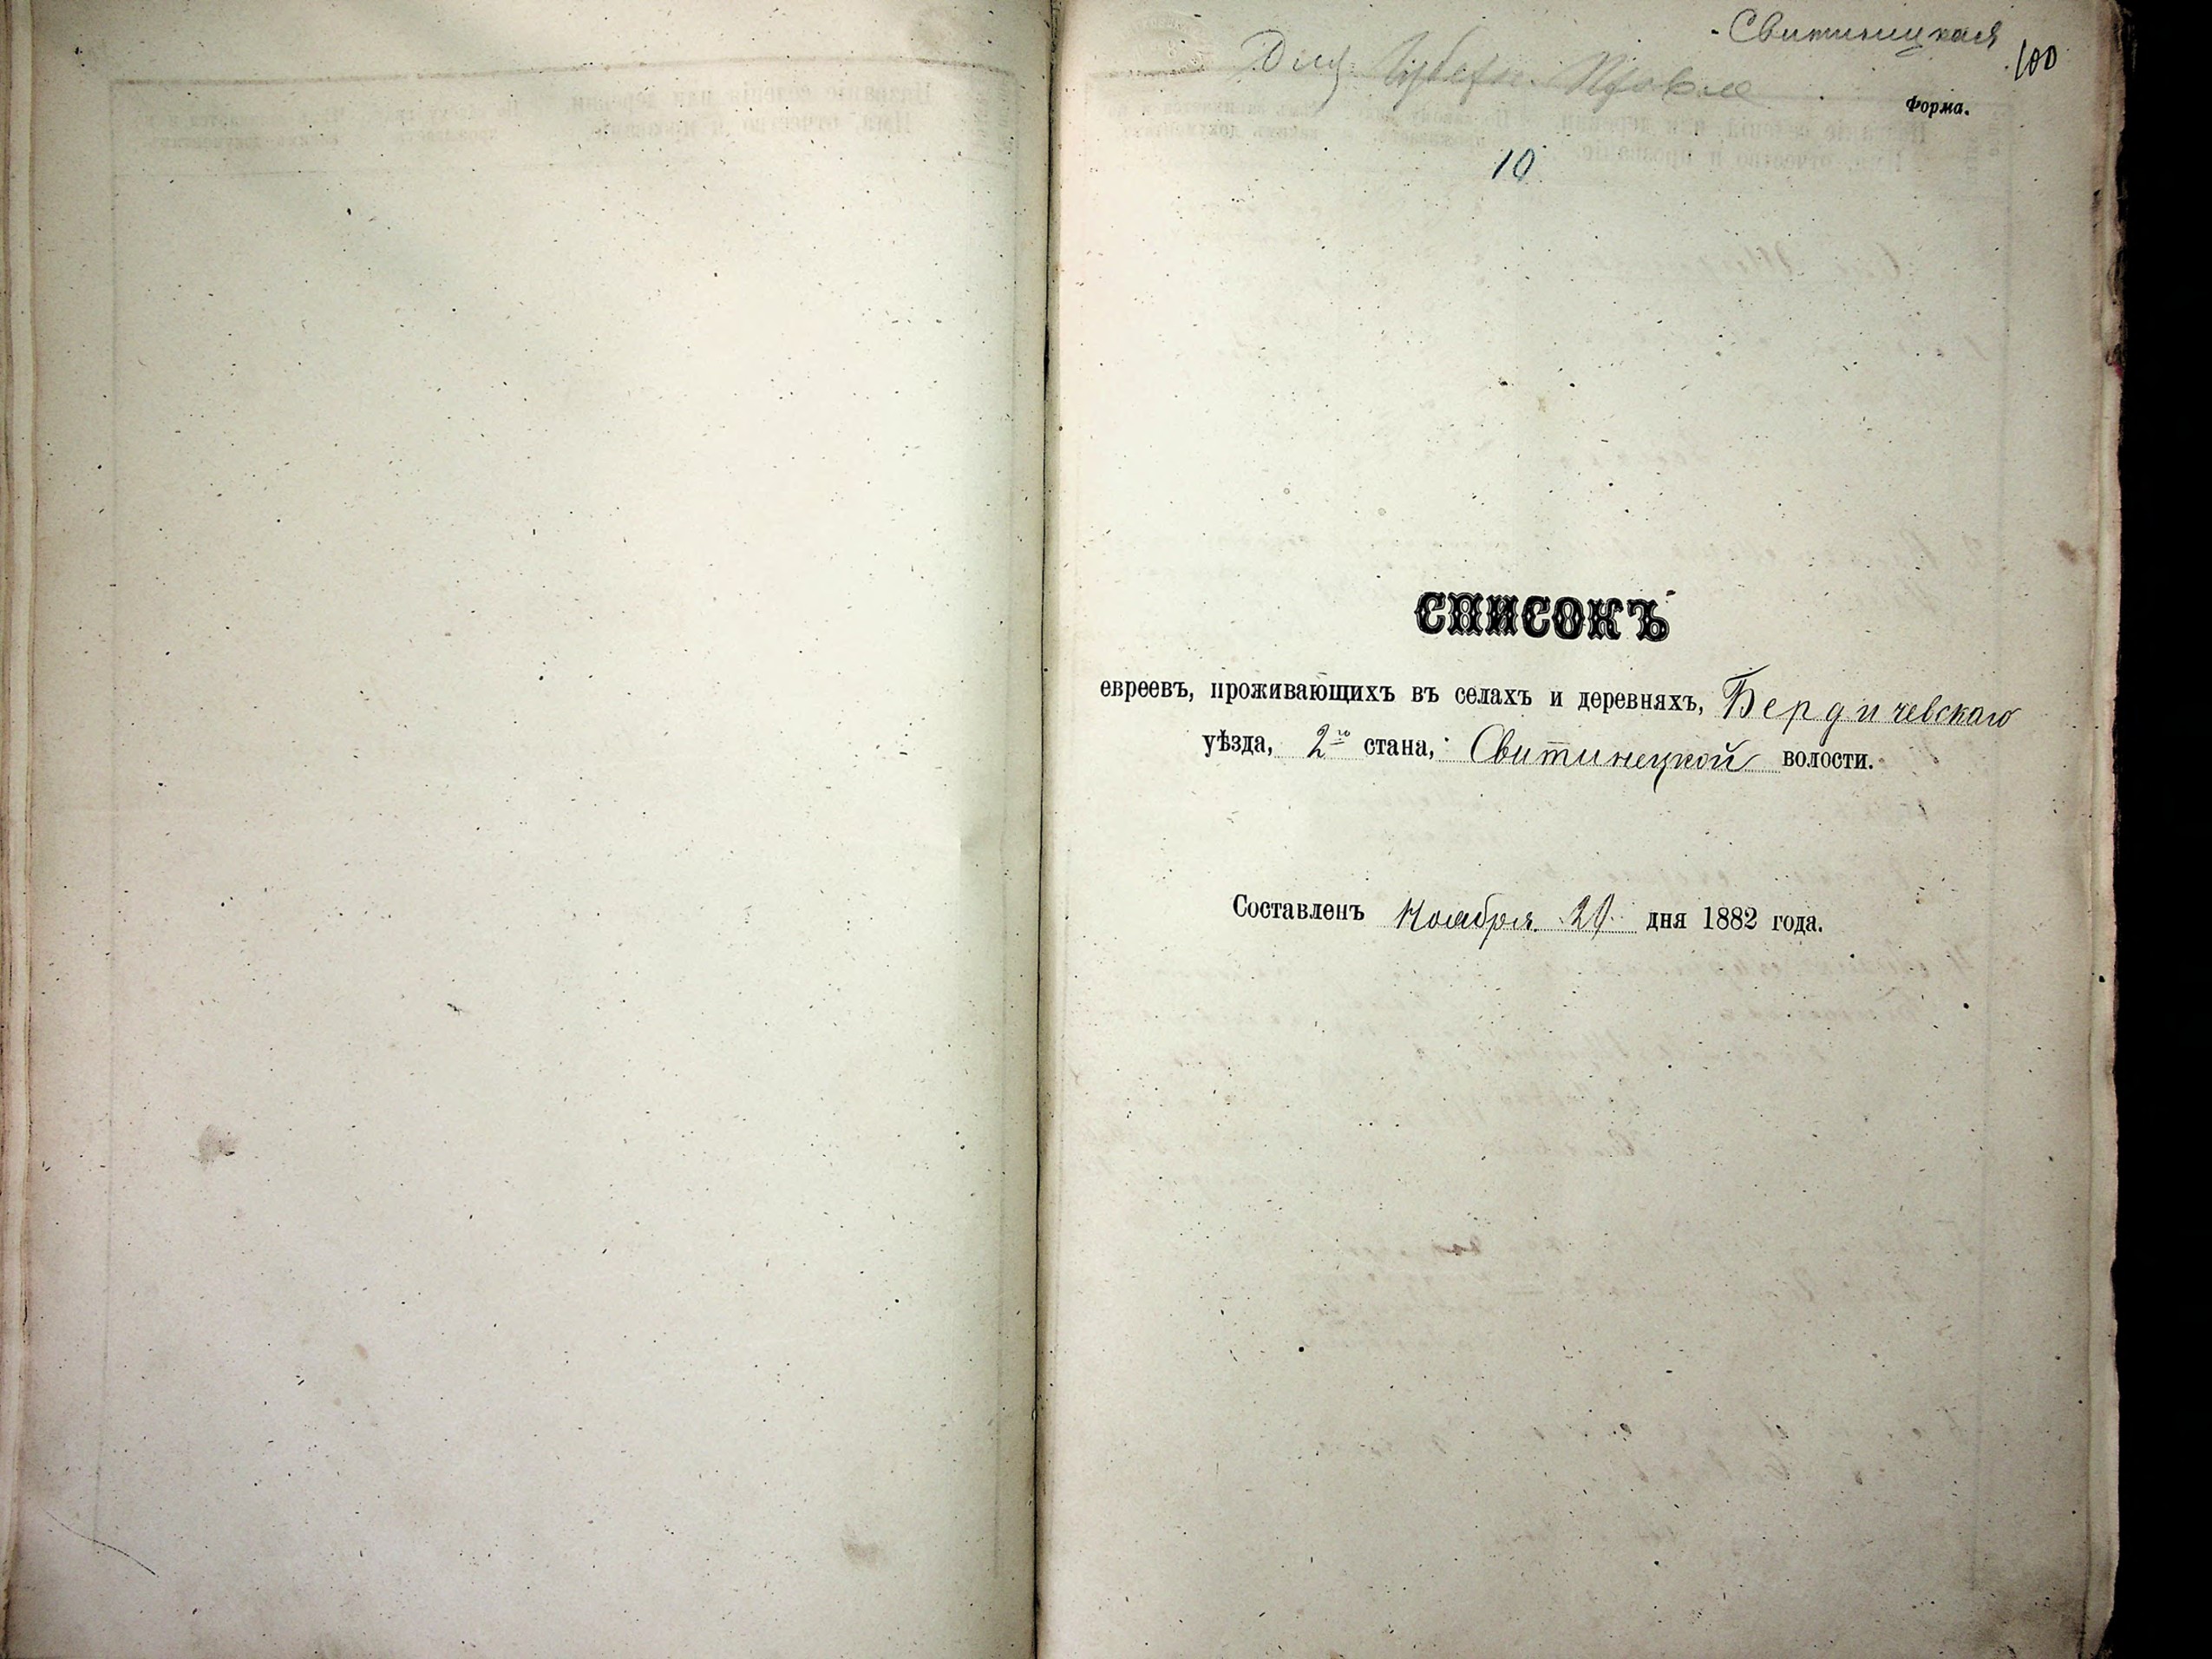 Свитинецкая
100
Для Губерн. Правле
Форма.
10
СПИСОКЪ
евреевъ, проживающихъ въ селахъ и деревняхъ, Бердичевскаго
уѣзда, 2го стана, Свитинецкой волости.
Составленъ Ноября 29 дня 1882 года.